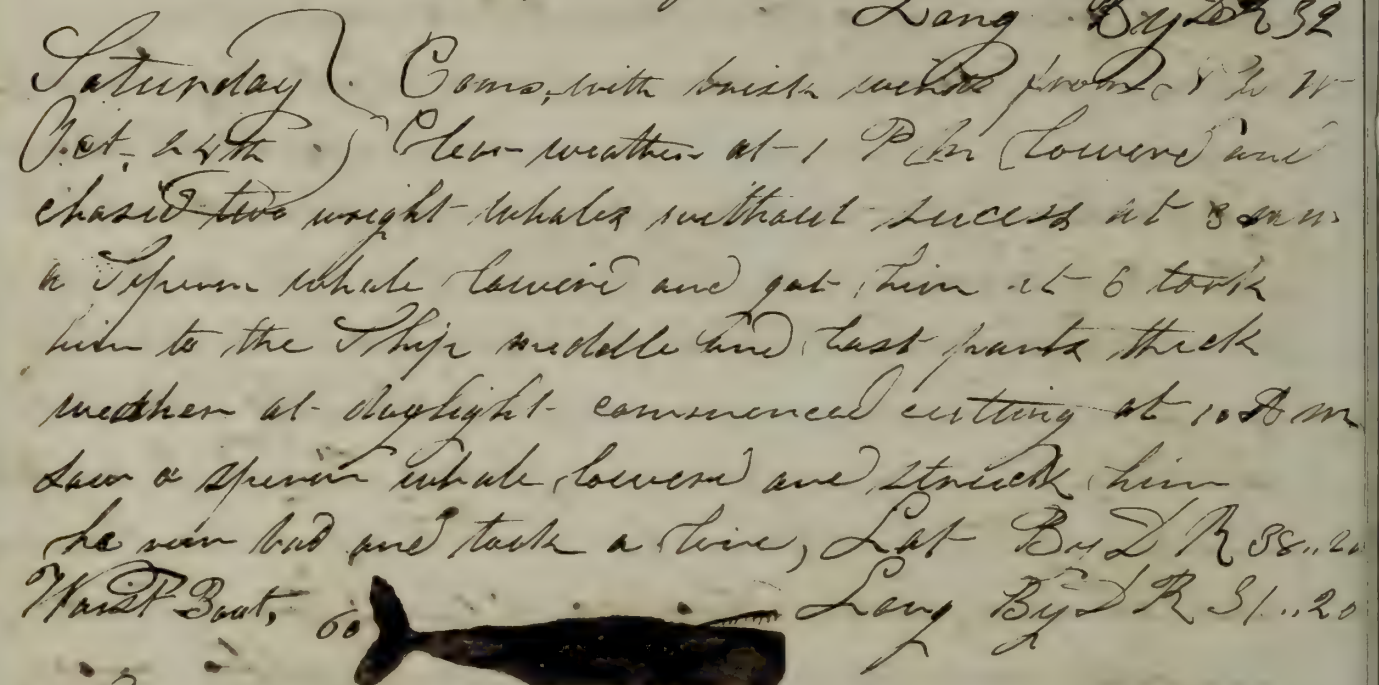 Long By D R 32
Saturday Coms, with brisk winds from S W
Oct. 24th Clear weather at 1 P M lowered and
chased two wright whales without sucess at 3 saw
a Sperm whale lowered and got him at 6 took
him to the Ship middle and last parts thick
weather at daylight commenced cutting at 10 A m
saw a sperm whale lowered and struck him
he run bad and took a line, Lat By D R 38..20
Waist Boat, 60 Long By D R 31..20